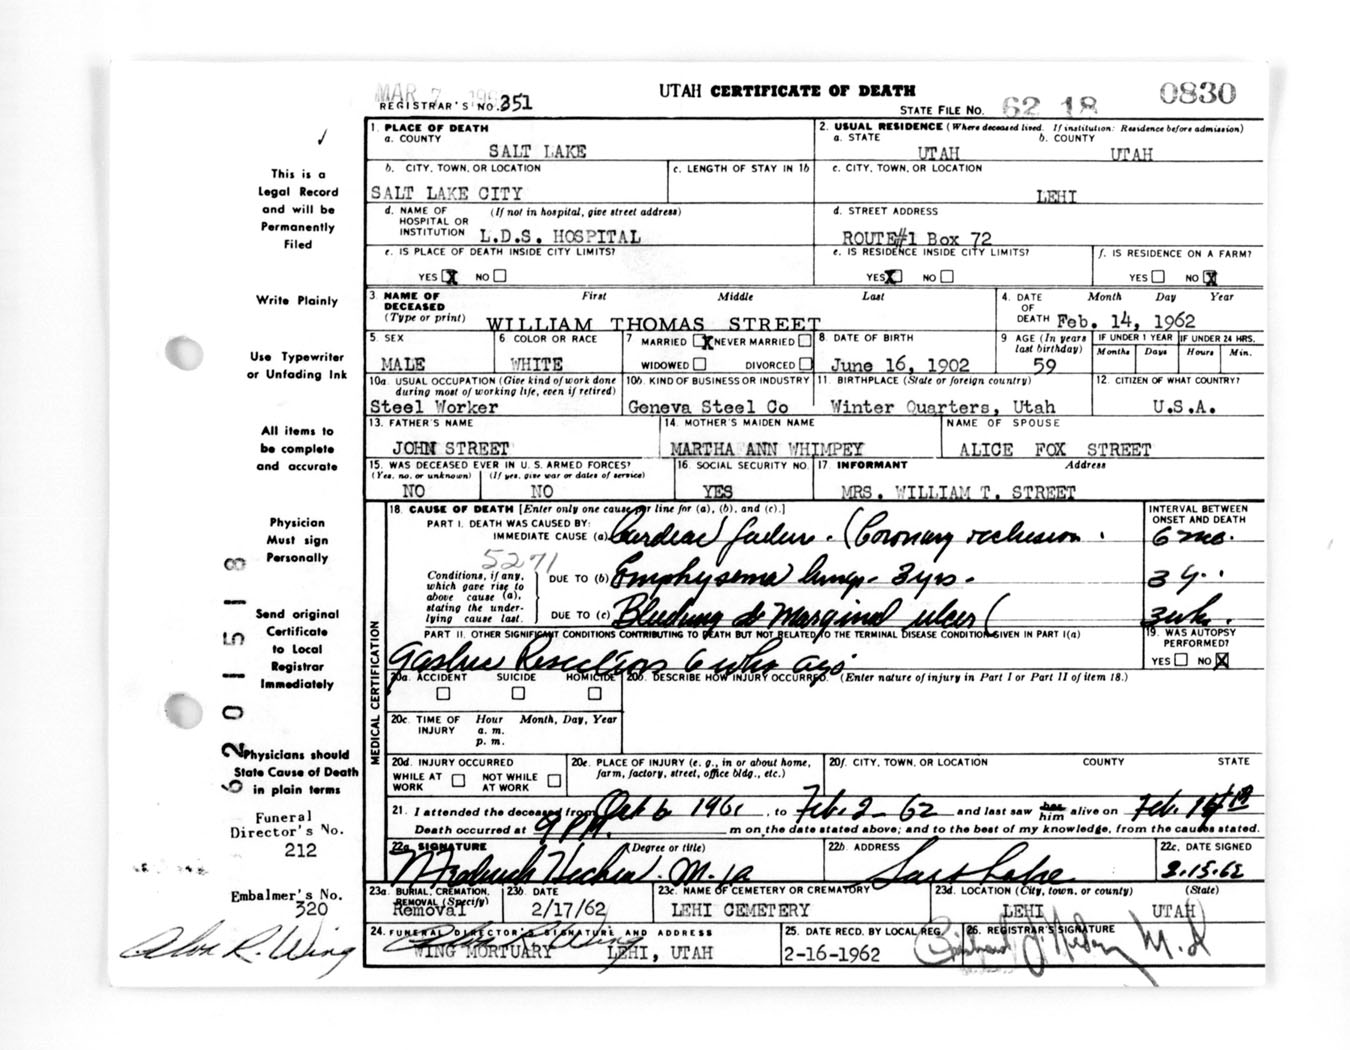 MAR 7 196
REGISTRAR'S NO. 351
UTAH CERTIFICATE OF DEATH
STATE FILE NO. 62 18 0830
This is a
Legal Record
and will be
Permanently
Filed
Write Plainly
Use Typewriter
or Unfading Ink
All items to
be complete
and accurate
Physician
Must sign
Personally
Send original
Certificate
to Local
Registrar
Immediately
Physicians should
State Cause of Death
in plain terms
Funeral
Director's No.
212
Embalmer's No.
320
Alva R. Wing
62 0 15 18
1. PLACE OF DEATH
a. COUNTY
SALT LAKE
2. USUAL RESIDENCE (Where deceased lived. If institution: Residence before admission)
a. STATE b. COUNTY
UTAH UTAH
b. CITY, TOWN, OR LOCATION c. LENGTH OF STAY IN 1b
SALT LAKE CITY
c. CITY, TOWN, OR LOCATION
LEHI
d. NAME OF HOSPITAL OR INSTITUTION (If not in hospital, give street address)
L.D.S. HOSPITAL
d. STREET ADDRESS
ROUTE#1 Box 72
e. IS PLACE OF DEATH INSIDE CITY LIMITS?
YES X NO
e. IS RESIDENCE INSIDE CITY LIMITS? f. IS RESIDENCE ON A FARM?
YES X NO YES NO X
3. NAME OF DECEASED (Type or print) First Middle Last
WILLIAM THOMAS STREET
4. DATE OF DEATH Month Day Year
Feb. 14, 1962
5. SEX 6 COLOR OR RACE 7 MARRIED X NEVER MARRIED
WIDOWED DIVORCED
MALE WHITE
8. DATE OF BIRTH 9 AGE (In years last birthday) IF UNDER 1 YEAR IF UNDER 24 HRS.
Months Days Hours Min.
June 16, 1902 59
10a. USUAL OCCUPATION (Give kind of work done during most of working life, even if retired)
Steel Worker
10b. KIND OF BUSINESS OR INDUSTRY
Geneva Steel Co
11. BIRTHPLACE (State or foreign country)
Winter Quarters, Utah
12. CITIZEN OF WHAT COUNTRY?
U.S.A.
13. FATHER'S NAME
JOHN STREET
14. MOTHER'S MAIDEN NAME
MARTHA ANN WHIMPEY
NAME OF SPOUSE
ALICE FOX STREET
15. WAS DECEASED EVER IN U. S. ARMED FORCES?
(Yes, no, or unknown) (If yes, give war or dates of service)
NO NO
16. SOCIAL SECURITY NO.
YES
17. INFORMANT Address
MRS. WILLIAM T. STREET
MEDICAL CERTIFICATION
18. CAUSE OF DEATH [Enter only one cause per line for (a), (b), and (c).]
INTERVAL BETWEEN ONSET AND DEATH
PART I. DEATH WAS CAUSED BY:
IMMEDIATE CAUSE (a) Cardiac failure. (Coronary occlusion. 6 mo.
5271
Conditions, if any, which gave rise to above cause (a), stating the underlying cause last.
DUE TO (b) Emphysema lungs - 3 yrs. 3 y.
DUE TO (c) Bleeding Marginal ulcer ( 3 wk.
PART II. OTHER SIGNIFICANT CONDITIONS CONTRIBUTING TO DEATH BUT NOT RELATED TO THE TERMINAL DISEASE CONDITION GIVEN IN PART I(a)
Gastric Resection 6 wks ago
19. WAS AUTOPSY PERFORMED?
YES NO X
20a. ACCIDENT SUICIDE HOMICIDE
20b. DESCRIBE HOW INJURY OCCURRED. (Enter nature of injury in Part I or Part II of item 18.)
20c. TIME OF INJURY Hour Month, Day, Year
a. m.
p. m.
20d. INJURY OCCURRED
WHILE AT WORK NOT WHILE AT WORK
20e. PLACE OF INJURY (e. g., in or about home, farm, factory, street, office bldg., etc.)
20f. CITY, TOWN, OR LOCATION COUNTY STATE
21. I attended the deceased from Oct 6 1961, to Feb. 2 - 62 and last saw her him alive on Feb. 14th
Death occurred at 9 P.M. m on the date stated above; and to the best of my knowledge, from the causes stated.
22a. SIGNATURE (Degree or title)
M. D.
22b. ADDRESS
Salt Lake
22c. DATE SIGNED
2-15-62
23a. BURIAL, CREMATION, REMOVAL (Specify)
Removal
23b. DATE
2/17/62
23c. NAME OF CEMETERY OR CREMATORY
LEHI CEMETERY
23d. LOCATION (City, town, or county) (State)
LEHI UTAH
24. FUNERAL DIRECTOR'S SIGNATURE AND ADDRESS
Alva R. Wing
WING MORTUARY LEHI, UTAH
25. DATE RECD. BY LOCAL REG.
2-16-1962
26. REGISTRAR'S SIGNATURE
M. D